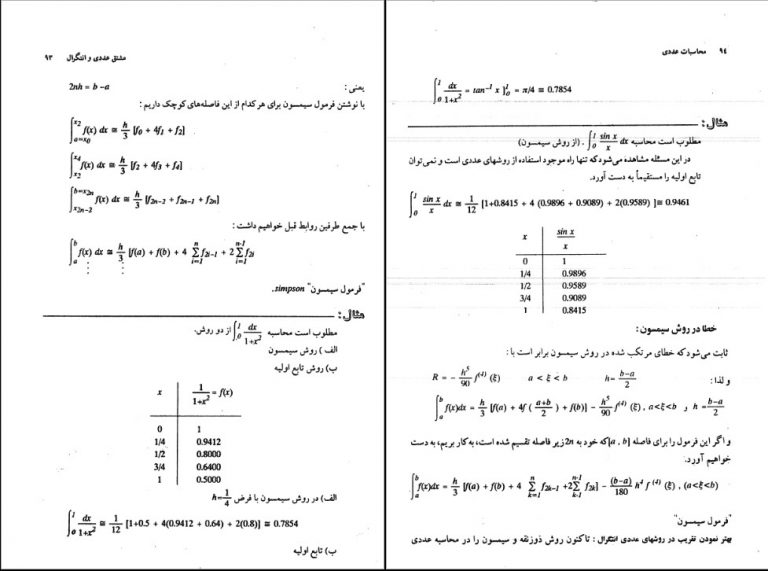 مشتق عددی و انتگرال ۹۳
یعنی : 2nh = b -a
با نوشتن فرمول سیمسون برای هر کدام از این فاصله‌های کوچک داریم :
∫_{a=x0}^{x2} f(x) dx ≅ h/3 [f0 + 4f1 + f2]
∫_{x2}^{x4} f(x) dx ≅ h/3 [f2 + 4f3 + f4]
∫_{x2n-2}^{b=x2n} f(x) dx ≅ h/3 [f2n-2 + f2n-1 + f2n]
با جمع طرفین روابط قبل خواهیم داشت :
∫_a^b f(x) dx ≅ h/3 [f(a) + f(b) + 4 Σ_{i=1}^{n} f2i-1 + 2 Σ_{i=1}^{n-1} f2i
⋮ ⋮
"فرمول سیمسون" simpson.
مثال :
مطلوب است محاسبه ∫_0^1 dx/1+x² از دو روش.
الف ) روش سیمسون
ب) روش تابع اولیه
x | 1/1+x² = f(x)
0 | 1
1/4 | 0.9412
1/2 | 0.8000
3/4 | 0.6400
1 | 0.5000
الف) در روش سیمسون با فرض h=1/4
∫_0^1 dx/1+x² ≅ 1/12 [1+0.5 + 4(0.9412 + 0.64) + 2(0.8)] ≅ 0.7854
ب) تابع اولیه
۹٤ محاسبات عددی
∫_0^1 dx/1+x² = tan⁻¹ x ]_0^1 = π/4 ≅ 0.7854
مثال :
مطلوب است محاسبه ∫_0^1 sin x/x dx . (از روش سیمسون)
در این مسئله مشاهده می‌شود که تنها راه موجود استفاده از روشهای عددی است و نمی‌توان
تابع اولیه را مستقیماً به دست آورد.
∫_0^1 sin x/x dx ≅ 1/12 [1+0.8415 + 4 (0.9896 + 0.9089) + 2(0.9589) ]≅ 0.9461
x | sin x/x
0 | 1
1/4 | 0.9896
1/2 | 0.9589
3/4 | 0.9089
1 | 0.8415
خطا در روش سیمسون :
ثابت می‌شود که خطای مرتکب شده در روش سیمسون برابر است با :
R = - h⁵/90 f⁽⁴⁾ (ξ) a < ξ < b h= b-a/2
و لذا :
∫_a^b f(x)dx = h/3 [f(a) + 4f ( a+b/2 ) + f(b)] - h⁵/90 f⁽⁴⁾ (ξ) , a<ξ<b و h = b-a/2
و اگر این فرمول را برای فاصله [a , b] که خود به 2n زیر فاصله تقسیم شده است، به کار بریم، به دست
خواهیم آورد.
∫_a^b f(x)dx = h/3 [f(a) + f(b) + 4 Σ_{k=1}^{n} f2k-1 +2 Σ_{k-1}^{n-1} f2k] - (b-a)/180 h⁴ f ⁽⁴⁾ (ξ) , (a<ξ<b)
"فرمول سیمسون"
بهتر نمودن تقریب در روشهای عددی انتگرال : تاکنون روش ذوزنقه و سیمسون را در محاسبه عددی